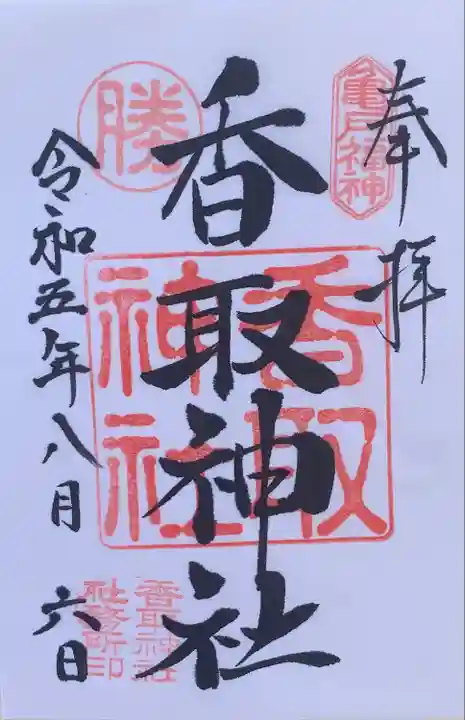 奉拝
亀戸福神
香取神社
香取神社
勝
令和五年八月六日
香取神社
社務所印